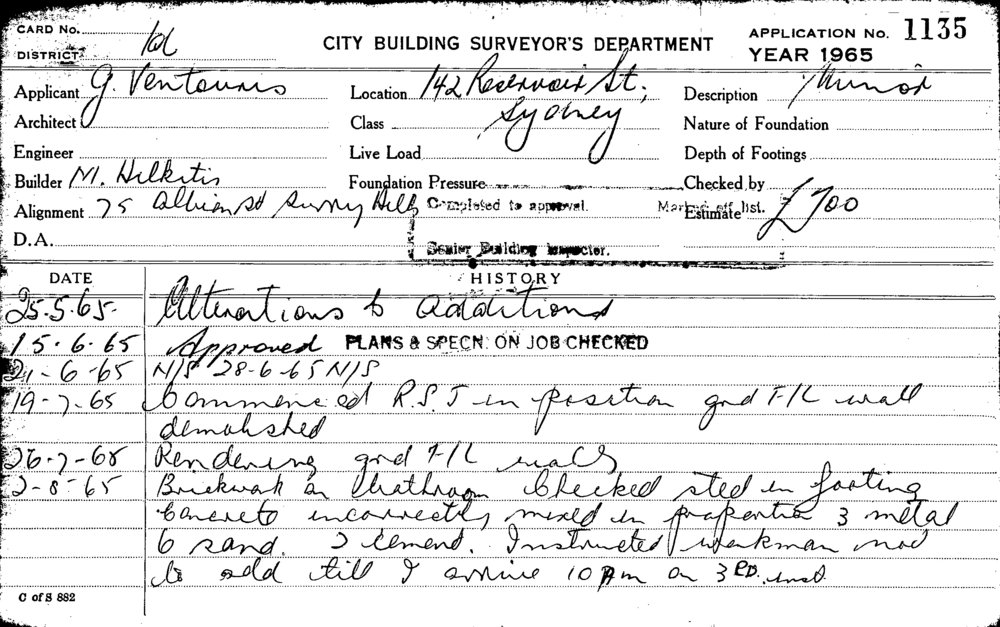 CARD No.
DISTRICT
CITY BUILDING SURVEYOR'S DEPARTMENT
APPLICATION No. 1135
YEAR 1965
Applicant G. Ventouris Location 142 Reservoir St; Description Minor
Architect Class Sydney Nature of Foundation
Engineer Live Load Depth of Footings
Builder M. Hilkitis Foundation Pressure Checked by
Alignment 75 Albion St Surry Hills Completed to approval. Marked off list. Estimate £700
D.A.
Senior Building Inspector.
DATE HISTORY
25.5.65. Alterations & additions
15.6.65 Approved PLANS & SPECN. ON JOB CHECKED
21-6-65 N/S 28-6-65 N/S
19-7-65 Commenced R.S.J in position gnd F/L wall
demolished
26-7-65 Rendering gnd F/L walls
2-8-65 Brickwork on bathroom Checked steel in footing
Concrete incorrectly mixed in proportion 3 metal
6 sand. 2 cement. Instructed workman not
to add till I arrive 10 Am on 3RD. inst
C of S 882